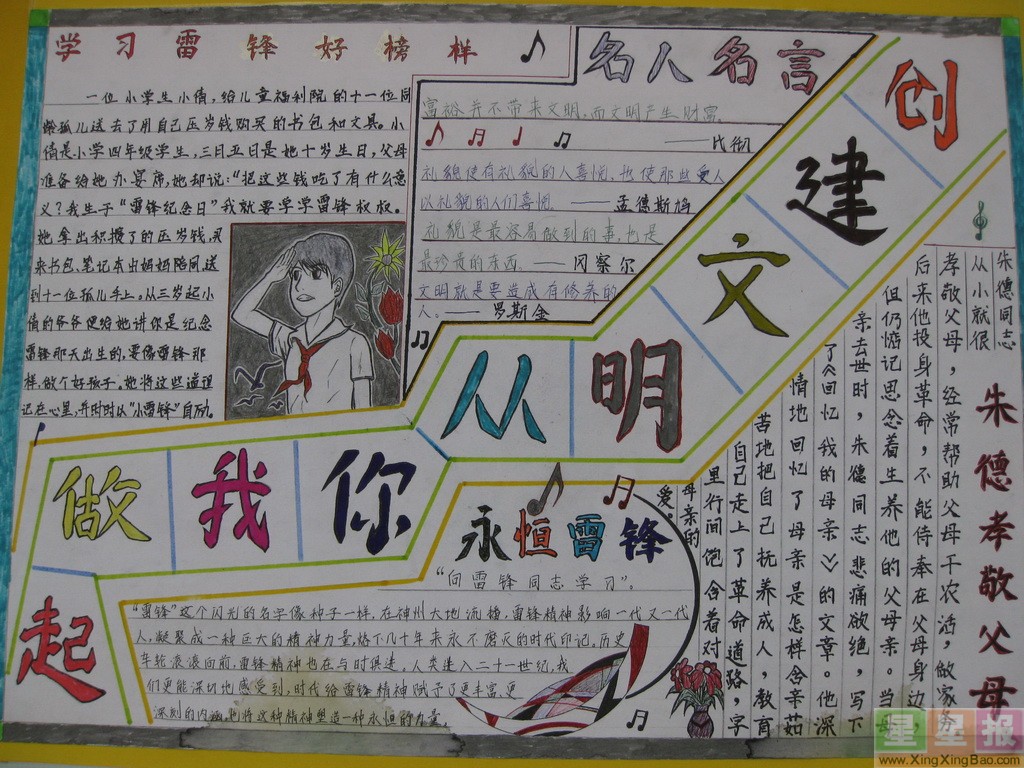 学习雷锋好榜样
一位小学生小倩,给儿童福利院的十一位同
龄孤儿送去了用自己压岁钱购买的书包和文具。小
倩是小学四年级学生,三日五日是她十岁生日,父母
准备给她办宴席,她却说:“把这些钱吃了有什么意
义?我生于“雷锋纪念日”我就要学学雷锋叔叔。
她拿出积攒了的压岁钱,买
来书包、笔记本由妈妈陪同,送
到十一位孤儿手上。从三岁起小
倩的爷爷便给她讲你是纪念
雷锋那天出生的,要像雷锋那
样,做个好孩子。她将这些道理
记在心里,并时时以“小雷锋”自励。
名人名言
富裕并不带来文明,而文明产生财富。
——比彻
礼貌使有礼貌的人喜悦,也使那些受人
以礼貌的人们喜悦 ——孟德斯鸠
礼貌是最容易做到的事,也是
最珍贵的东西。——冈察尔
文明就是要造成有修养的
人。——罗斯金
创建文明从你我做起
朱德孝敬父母
朱德同志
从小就很
孝敬父母,经常帮助父母干农活,做家务
后来他投身革命,不能侍奉在父母身边
但仍惦记思念着生养他的父母亲。当
亲去世时,朱德同志悲痛欲绝,写下
了《回忆我的母亲》的文章。他深
情地回忆了母亲是怎样含辛茹
苦地把自己抚养成人,教育
自己走上了革命道路,字
里行间饱含着对
母亲的
爱。
永恒雷锋
“向雷锋同志学习”。
“雷锋”这个闪光的名字像种子一样,在神州大地流播,雷锋精神影响一代又一代
人,凝聚成一种巨大的精神力量,烙下几十年来永不磨灭的时代印记,历史
车轮滚滚向前,雷锋精神也在与时俱进。人类进入二十一世纪,我
们更能深切地感受到,时代给雷锋精神赋予了更丰富、更
深刻的内涵,也将这种精神塑造一种永恒的力量。
星星报
www.XingXingBao.com